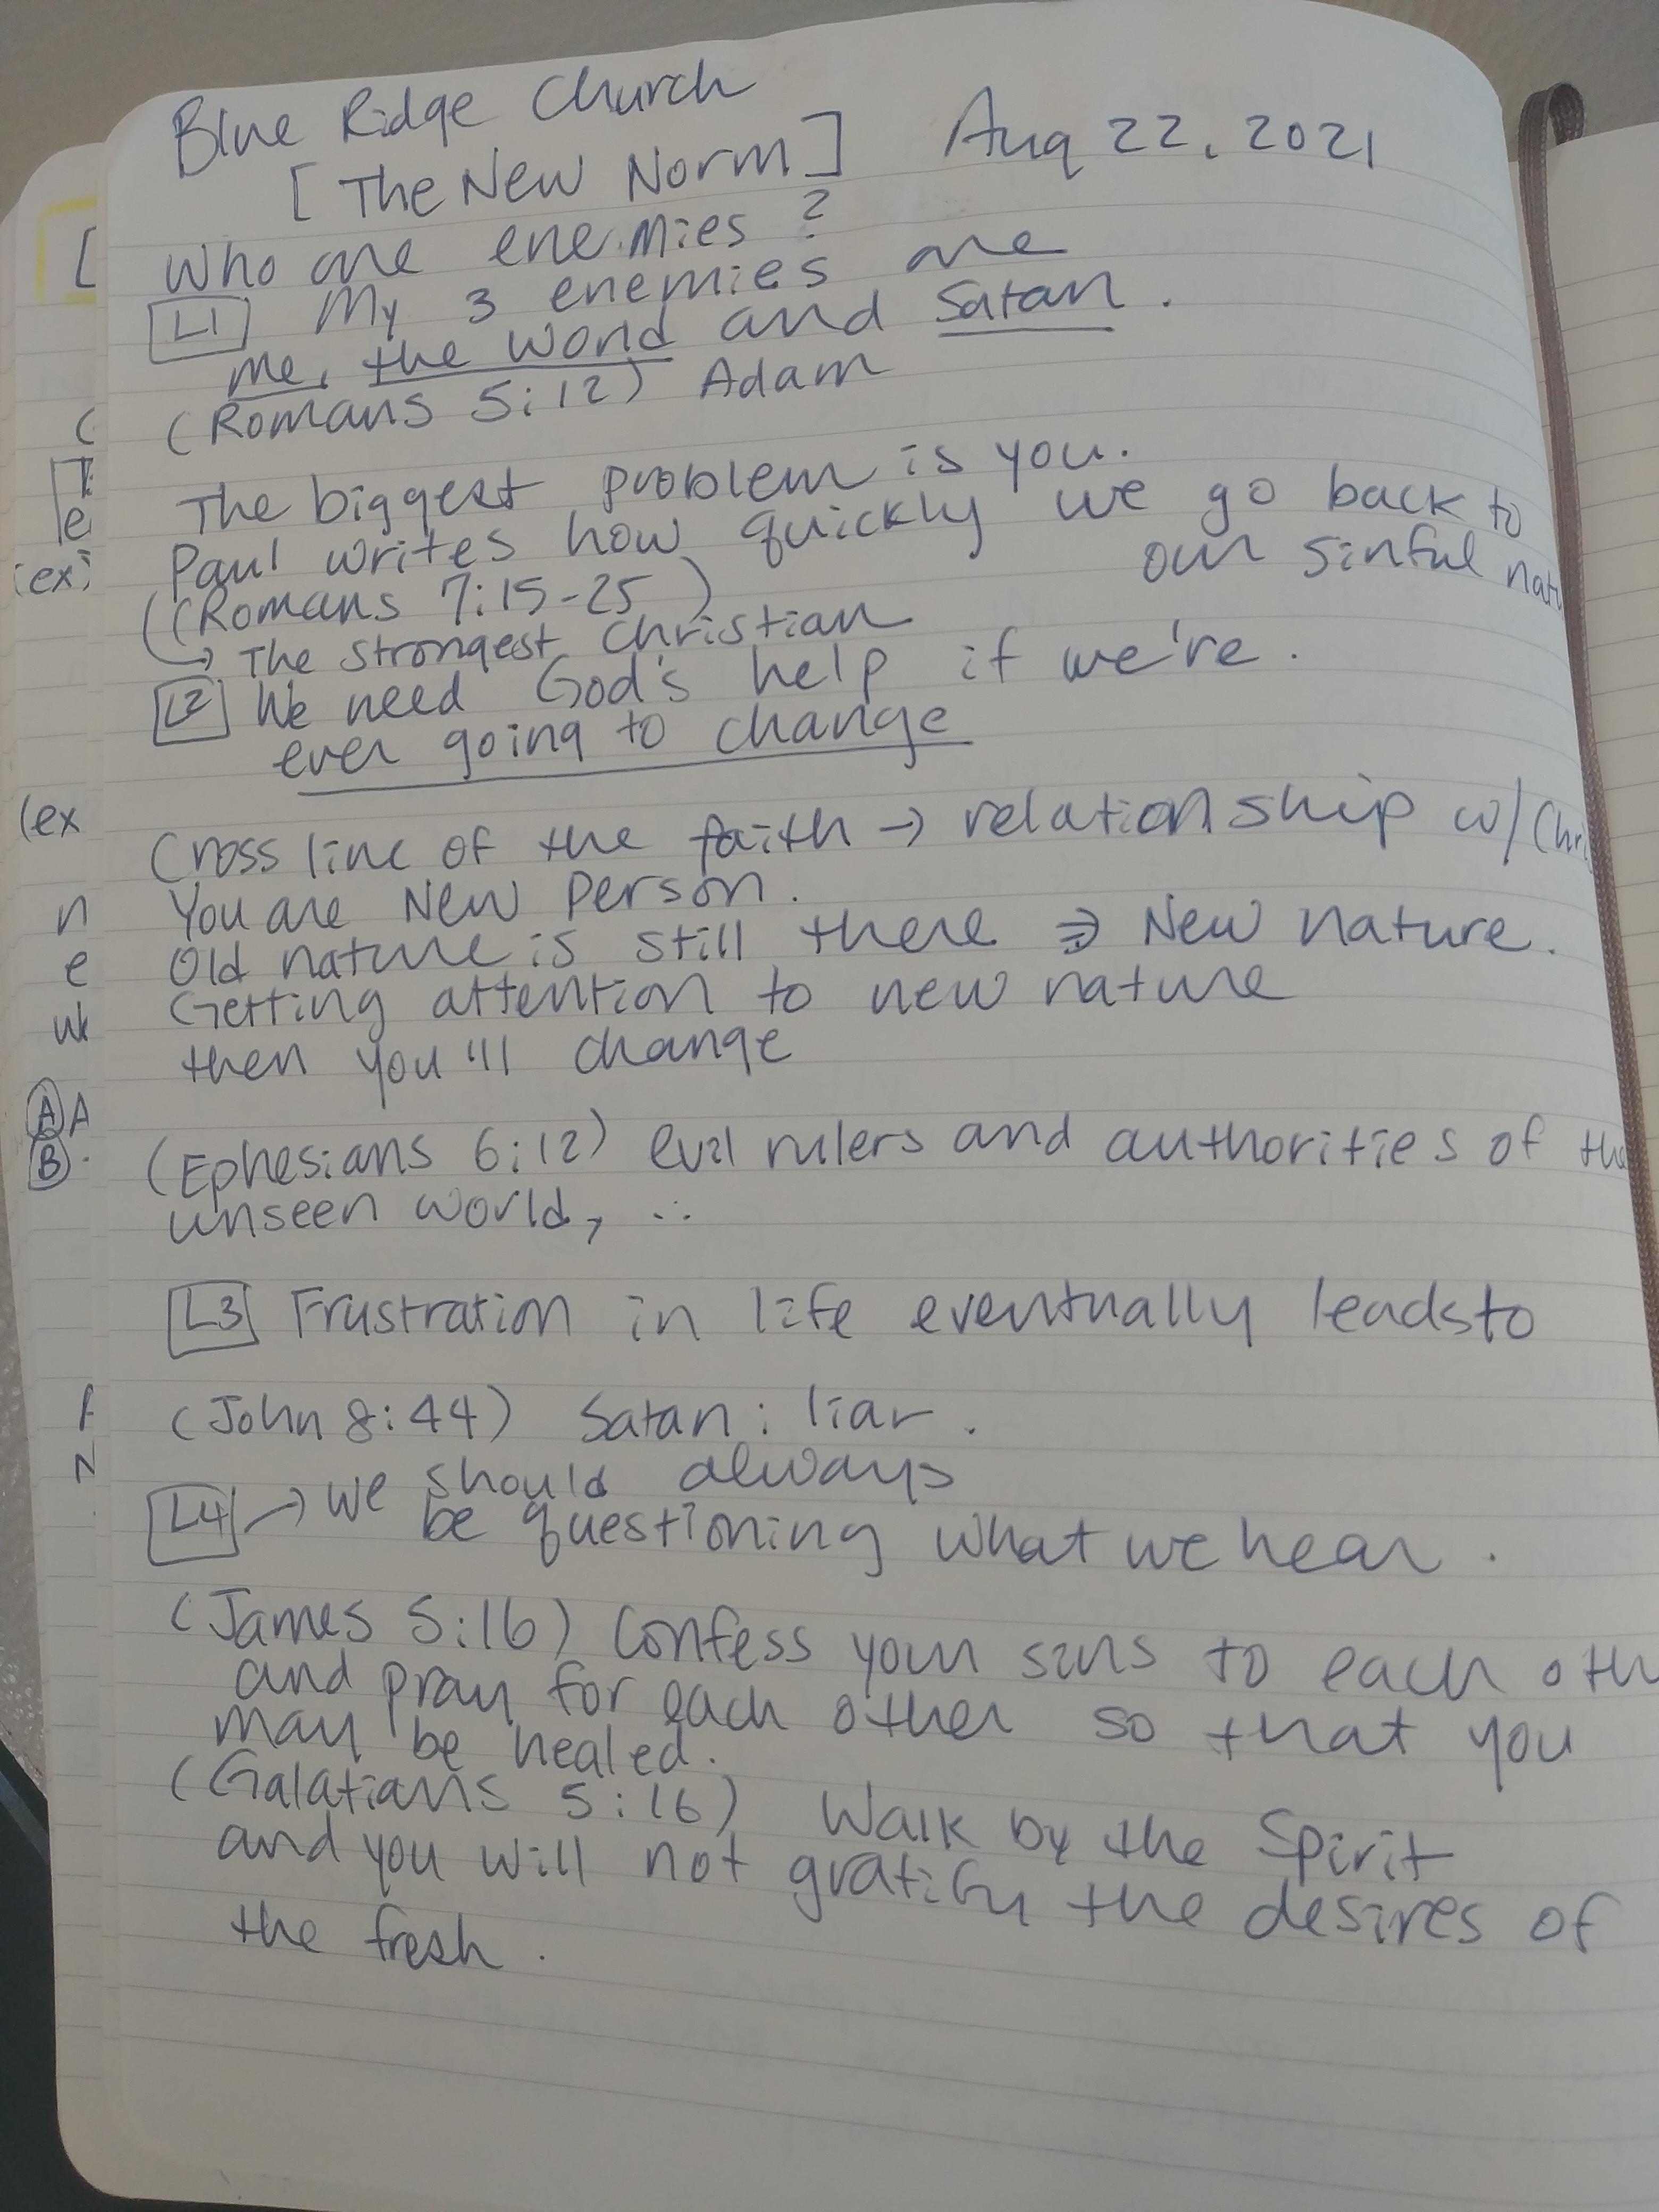 Blue Ridge Church
[The New Norm] Aug 22, 2021
Who are enemies?
L1 My 3 enemies are
me, the world and Satan.
(Romans 5:12) Adam
The biggest problem is you.
Paul writes how quickly we go back to
our sinful natu
(Romans 7:15-25)
→ The strongest Christian
L2 We need God's help if we're.
ever going to change
Cross line of the faith → relationship w/ Chri
You are New person.
Old nature is still there ⇒ New nature.
Getting attention to new nature
then you'll change
(Ephesians 6:12) evil rulers and authorities of the
unseen world, ...
L3 Frustration in life eventually leads to
(John 8:44) Satan: liar.
L4 → we should always
be questioning what we hear.
(James 5:16) Confess your sins to each oth
and pray for each other so that you
may be healed.
(Galatians 5:16) Walk by the Spirit
and you will not gratify the desires of
the fresh.
[
(
e
(ex)
(ex
n
e
A A
B.
N